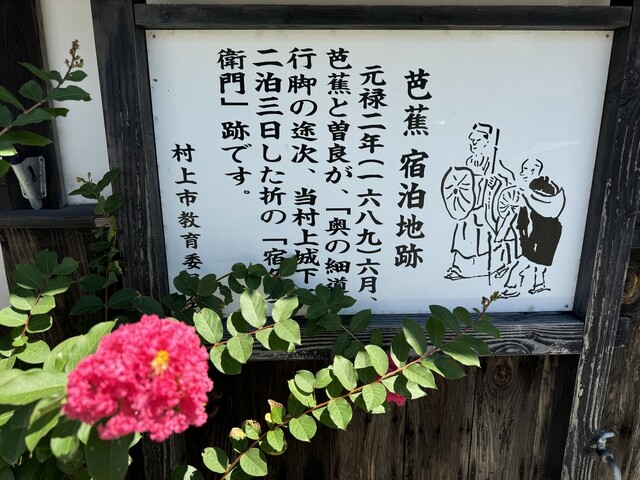 芭蕉 宿泊地跡
元禄二年(一六八九)六月、
芭蕉と曽良が、「奥の細道
行脚の途次、当村上城下
二泊三日した折の「宿
衛門」跡です。
村上市教育委